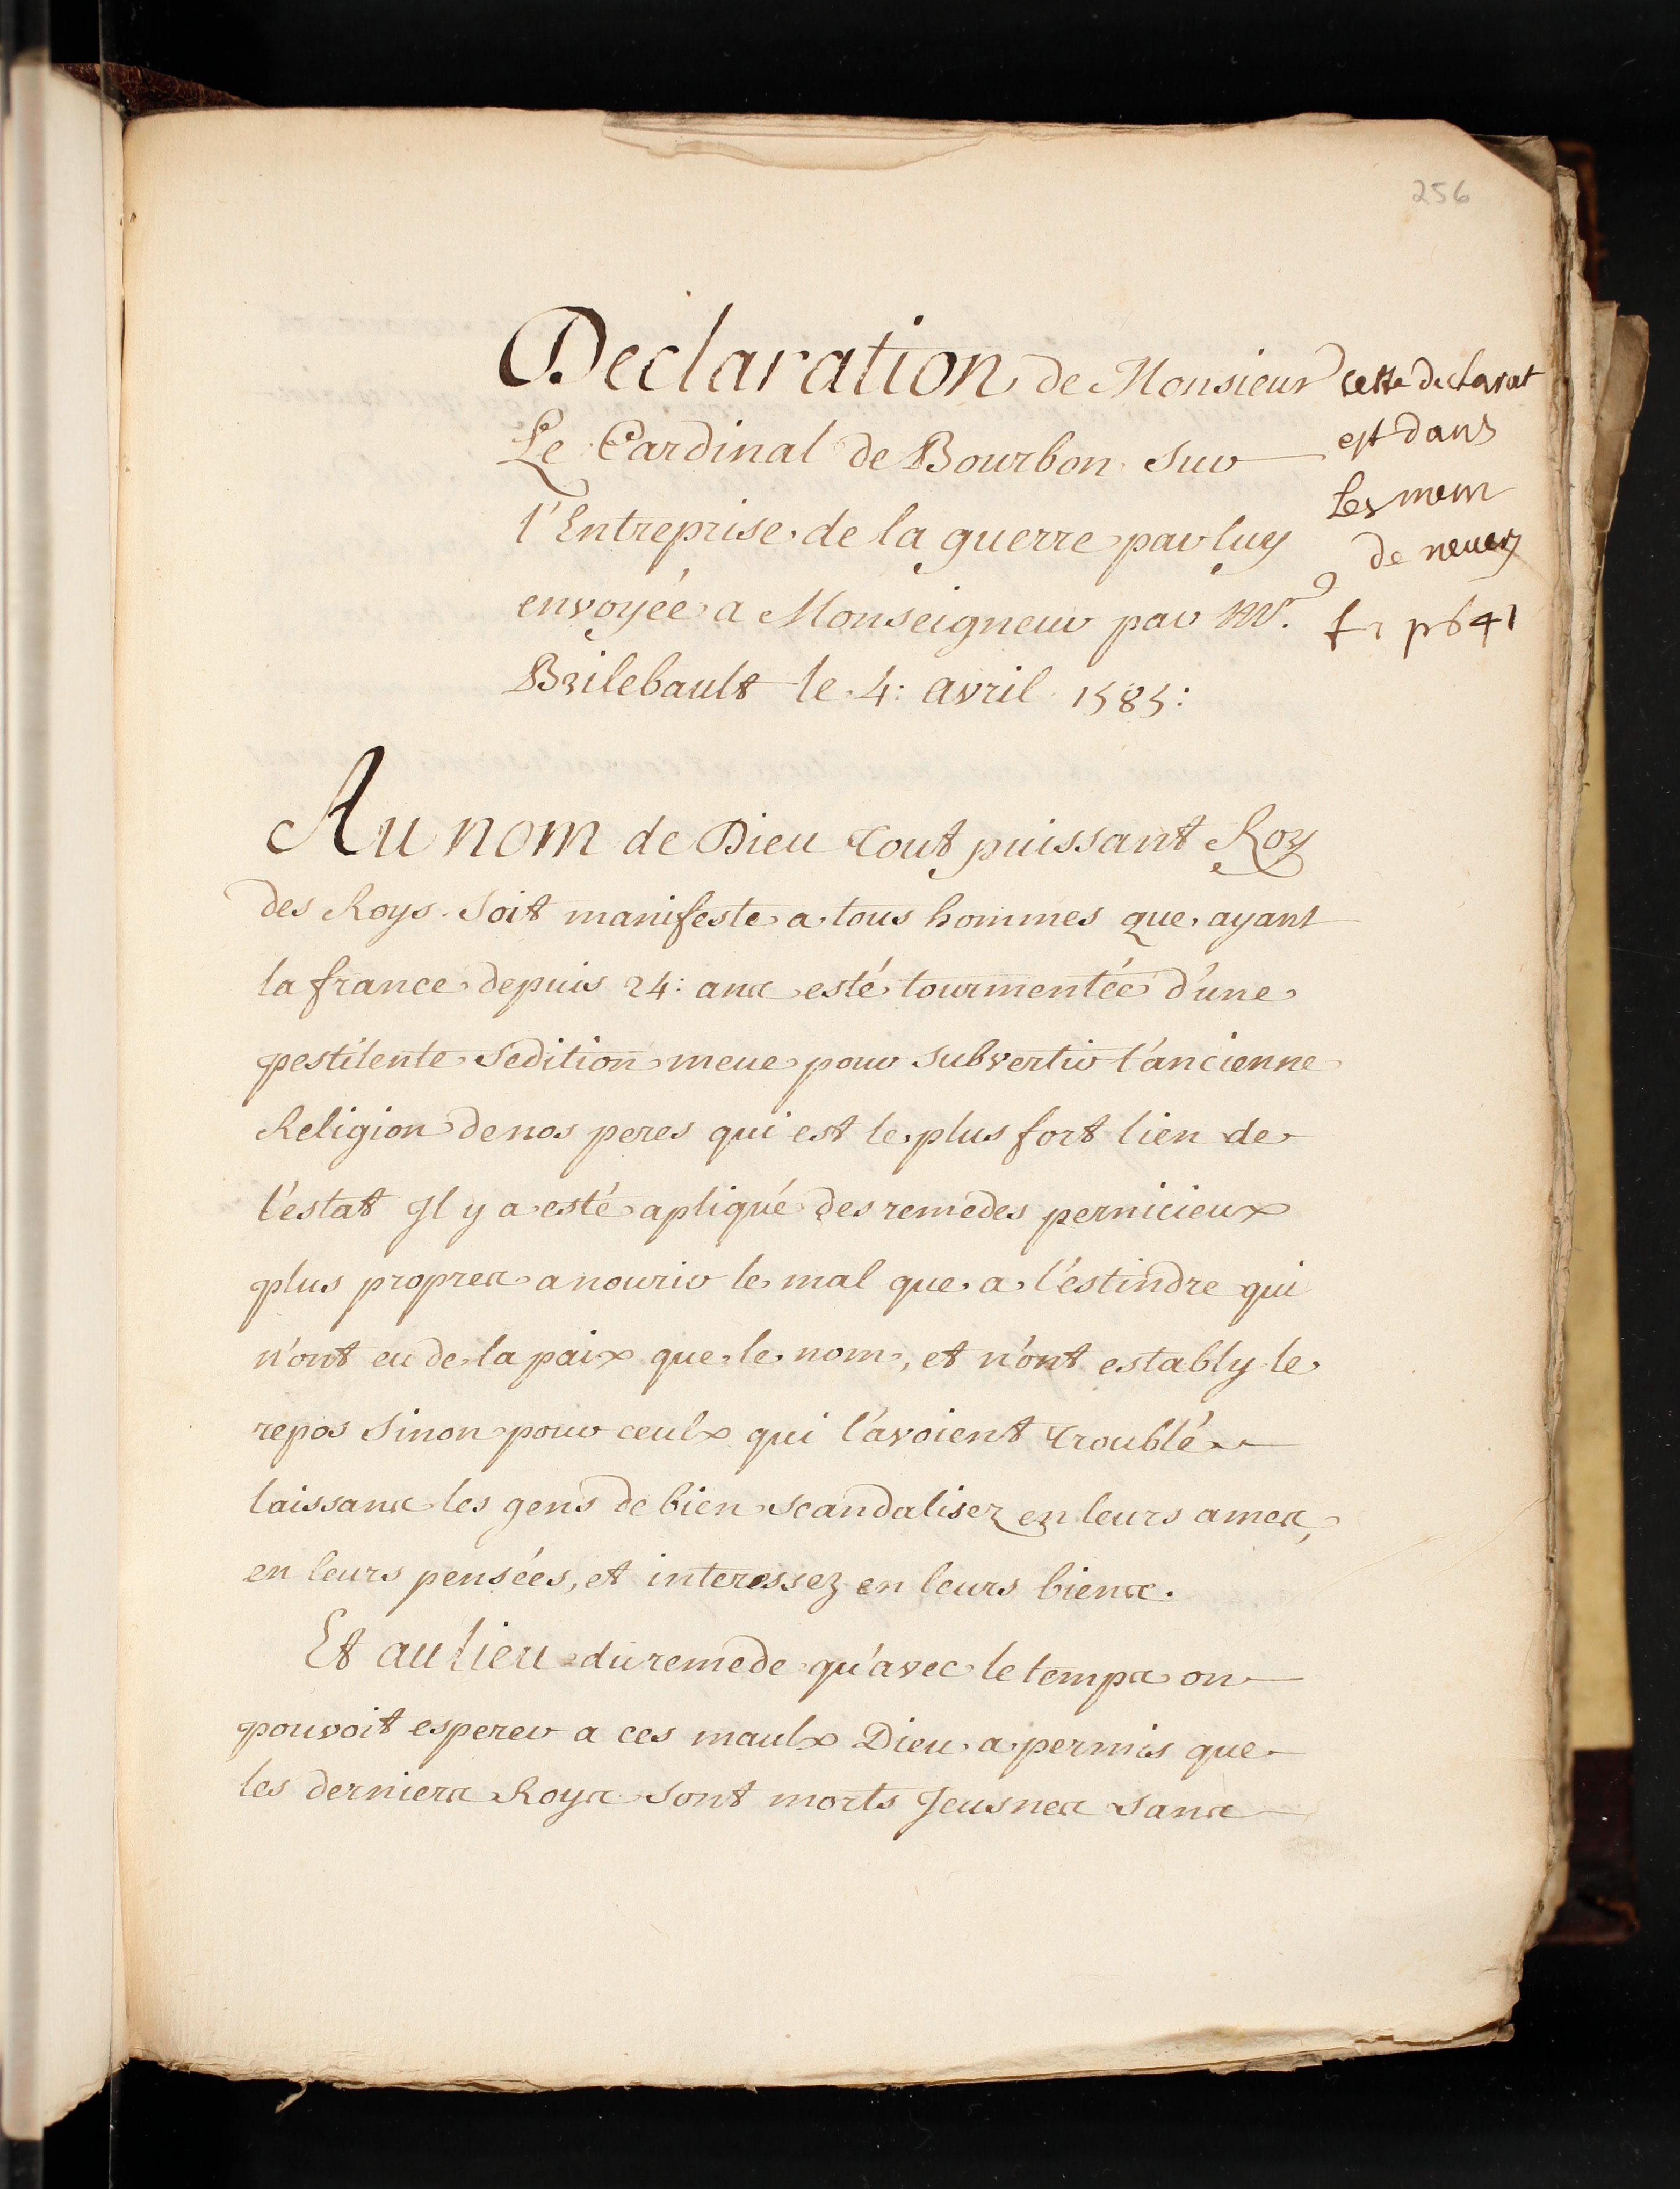 256
Declaration de Monsieur
Le Cardinal de Bourbon sur
l'Entreprise de la guerre par luy
envoyée a Monseigneur par Mr.
Brilebault le 4: avril 1585:
cette declarat
est dans
les mem
de nevers
p 641
Au nom de Dieu tout puissant Roy
des Roys. Soit manifeste a tous hommes que ayant
la france depuis 24: ans esté tourmentée d'une
pestilente sedition meue pour subvertir l'ancienne
Religion de nos peres qui est le plus fort lien de
l'estat Il y a esté apliqué des remedes pernicieux
plus propres a nourir le mal que a l'estindre qui
n'ont eu de la paix que le nom, et n'ont estably le
repos sinon pour ceulx qui l'avoient troublé
laissans les gens de bien scandalisez en leurs ames,
en leurs pensées, et interessez en leurs biens.
Et au lieu du remede qu'avec le temps on
pouvoit esperer a ces maulx Dieu a permis que
les derniers Roys sont morts Jeusnes sans